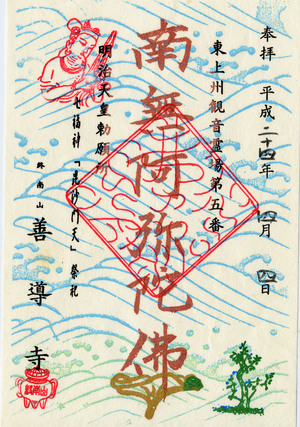 奉拝 平成二十四年 四月 四日
東上州観音霊場第五番
南無阿弥陀佛
明治天皇勅願所
七福神「毘沙門天」祭祀
終南山 善導寺